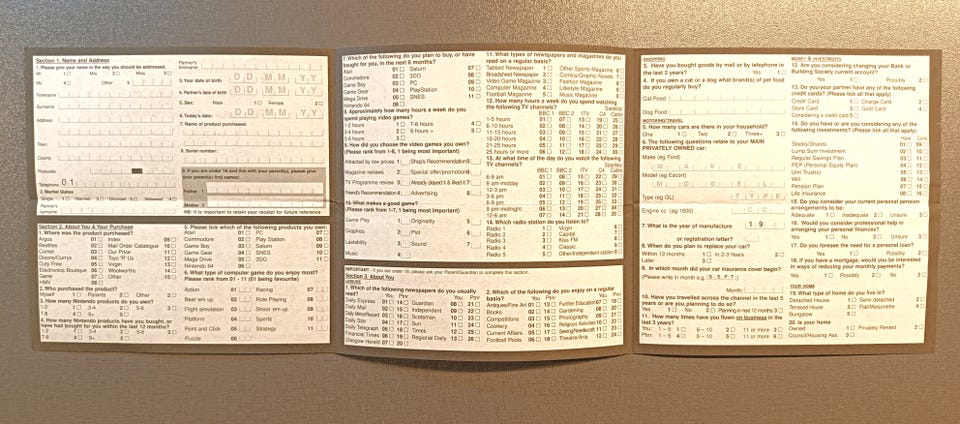 Section 1. Name and Address
1. Please give your name in the way you should be addressed.
Mr 1 Mrs 2 Miss 3
Ms 4 5 6
Forename
Surname
Address
Town
County
Postcode
Telephone 0 1
2. Marital Status
Single 1 Married 2 Divorced 3 Widowed 4
Partner's surname
Partner's forename
3. Your date of birth D D M M Y Y
4. Partner's date of birth D D M M Y Y
5. Sex: Male 1 Female 2
6. Today's date: D D M M Y Y
7. Name of product purchased:
8. Serial number:
9. If you are under 18 and live with your parent(s), please give your parent(s) first names:
Father 1
Mother 2
NB: It is important to retain your receipt for future reference
Section 2. About You & Your Purchase
1. Where was the product purchased?
Argos 01 Index 09
Beatties 02 Mail Order Catalogue 10
Comet 03 Our Price 11
Dixons/Currys 04 Toys 'R' Us 12
Duty Free 05 Virgin 13
Electronics Boutique 06 Woolworths 14
Game 07 Other 15
HMV 08
2. Who purchased the product?
Myself 1 Parents 2 Other 3
3. How many Nintendo products do you own?
1-2 1 3-4 2 5-6 3
7-8 4 9+ 5
4. How many Nintendo products have you bought, or have had bought for you within the last 12 months?
1-2 1 3-4 2 5-6 3
7-8 4 9+ 5
5. Please tick which of the following products you own:
Atari 01 PC 07
Commodore 02 Play Station 08
Game Boy 03 Saturn 09
Game Gear 04 SNES 10
Mega Drive 05 3DO 11
Nintendo 64 06
6. What type of computer game do you enjoy most?
Please rank from 01 - 11 (01 being favourite)
Action 01 Racing 07
Beat 'em up 02 Role Playing 08
Flight simulation 03 Shoot 'em up 09
Platform 04 Sports 10
Point and Click 05 Strategy 11
Puzzle 06
7. Which of the following do you plan to buy, or have bought for you, in the next 6 months?
Atari 01 Saturn 07
Commodore 02 3DO 08
Game Boy 03 PC 09
Game Gear 04 PlayStation 10
Mega Drive 05 SNES 11
Nintendo 64 06
8. Approximately how many hours a week do you spend playing video games?
1-2 hours 1 7-8 hours 4
3-4 hours 2 9 hours + 5
5-6 hours 3
9. How did you choose the video games you own?
(Please rank from 1-8, 1 being most important)
Attracted by low prices 1 Shop's Recommendation 5
Magazine reviews 2 Special offer/promotion 6
TV Programme review 3 Already played it & liked it 7
Friends Recommendation 4 Advertising 8
10. What makes a good game?
(Please rank from 1-7, 1 being most important)
Game Play 1 Originality 5
Graphics 2 Plot 6
Lastability 3 Sound 7
Music 4
11. What types of newspapers and magazines do you read on a regular basis?
Tabloid Newspaper 1 Other Sports Magazine 6
Broadsheet Newspaper 2 Comics/Graphic Novels 7
Video Game Magazine 3 Fashion Magazine 8
Computer Magazine 4 Lifestyle Magazine 9
Football Magazine 5 Music Magazine
12. How many hours a week do you spend watching the following TV channels?
BBC 1 BBC 2 ITV C4 Satellite/Cable
1-5 hours 01 07 13 19 25
6-10 hours 02 08 14 20 26
11-15 hours 03 09 15 21 27
16-20 hours 04 10 16 22 28
21-25 hours 05 11 17 23 29
25 hours or more 06 12 18 24 30
13. At what time of the day do you watch the following TV channels?
BBC 1 BBC 2 ITV C4 Satellite/Cable
6-9 am 01 08 15 22 29
9 am-midday 02 09 16 23 30
12-3 pm 03 10 17 24 31
3-6 pm 04 11 18 25 32
6-9 pm 05 12 19 26 33
9 pm-midnight 06 13 20 27 34
12-6 am 07 14 21 28 35
14. Which radio station do you listen to?
Radio 1 1 Virgin 6
Radio 2 2 Capital 7
Radio 3 3 Kiss FM 8
Radio 4 4 Classic 9
Radio 5 5 Other/Independent station
IMPORTANT - If you are under 18, please ask your Parent/Guardian to complete this section.
Section 3. About You
LEISURE
1. Which newspapers do you usually read?
You Ptnr You Ptnr
Daily Express 01 14 Guardian 08 21
Daily Mail 02 15 Independent 09 22
Daily Mirror/Record 03 16 Scotsman 10 23
Daily Star 04 17 Sun 11 24
Daily Telegraph 05 18 Times 12 25
Financial Times 06 19 Regional Daily 13 26
Glasgow Herald 07 20
2. Which of the following do you enjoy on a regular basis?
Antiques/Fine Art 01 Further Education 07
Books 02 Gardening 08
Competitions 03 Photography 09
Cookery 04 Religious Activities 10
Current Affairs 05 Sewing/Needlecraft 11
Football Pools 06 Theatre/Arts 12
SHOPPING
3. Have you bought goods by mail or by telephone in the last 2 years? Yes 1
4. If you own a cat or a dog what brand(s) of pet food do you regularly buy?
Cat Food
Dog Food
MOTORING/TRAVEL
5. How many cars are there in your household?
One 1 Two 2 Three+ 3
6. The following questions relate to your MAIN PRIVATELY OWNED car:
Make (eg Ford)
M A K E
Model (eg Escort)
M O D E L
Type (eg GL) T Y P E
Engine cc (eg 1600) C C
7. What is the year of manufacture 1 9
or registration letter?
8. When do you plan to replace your car?
Within 12 months 1 In 2-3 Years 2
Later 3
9. In which month did your car insurance cover begin?
Please write in month eg S E P T
Month:
10. Have you travelled across the channel in the last 5 years or are you planning to do so?
Yes 1 No 2 Planning in next 12 months 3
11. How many times have you flown on business in the last 3 years?
You: 1 - 5 1 6 - 10 2 11 or more 3
Ptnr: 1 - 5 4 6 - 10 5 11 or more 6
MONEY & INVESTMENTS
12. Are you considering changing your Bank or Building Society current account?
Yes 1 Possibly 2
13. Do you/your partner have any of the following credit cards? (Please tick all that apply)
Credit Card 1 Charge Card 2
Store Card 3 Gold Card 4
Considering a credit card 5
14. Do you have or are you considering any of the following investments? (Please tick all that apply)
Have Cons
Stocks/Shares 01 09
Lump Sum Investment 02 10
Regular Savings Plan 03 11
PEP (Personal Equity Plan) 04 12
Unit Trust(s) 05 13
Will 06 14
Pension Plan 07 15
Life Insurance 08 16
15. Do you consider your current personal pension arrangements to be:
Adequate 1 Inadequate 2 Unsure 3
16. Would you consider professional help in arranging your personal finances?
Yes 1 No 2 Unsure 3
17. Do you foresee the need for a personal loan?
Yes 1 Possibly 2
18. If you have a mortgage, would you be interested in ways of reducing your monthly payments?
Yes 1 No 2 Possibly 3
YOUR HOME
19. What type of home do you live in?
Detached House 1 Semi detached 2
Terraced House 3 Flat/Maisonette 4
Bungalow 5
20. Is your home
Owned 1 Privately Rented 2
Council/Housing Ass. 3